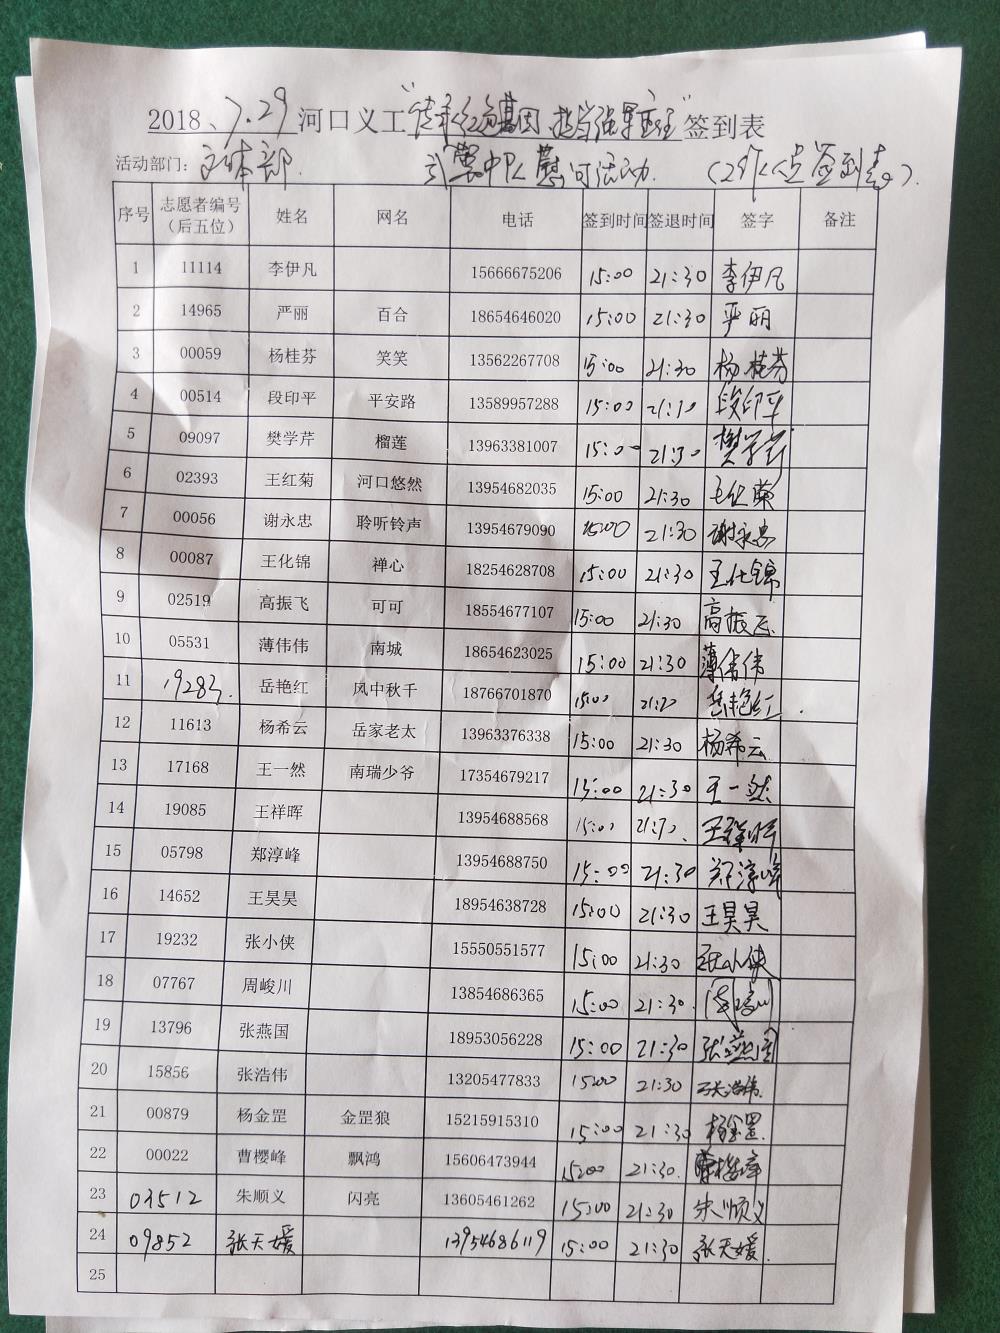 2018、7.29 河口义工"传承红色基因、担当强军重任"签到表
活动部门：文体部 武警中队慰问活动 （工作人员签到表）
序号 志愿者编号（后五位） 姓名 网名 电话 签到时间 签退时间 签字 备注
1 11114 李伊凡 15666675206 15:00 21:30 李伊凡
2 14965 严丽 百合 18654646020 15:00 21:30 严丽
3 00059 杨桂芬 笑笑 13562267708 15:00 21:30 杨桂芬
4 00514 段印平 平安路 13589957288 15:00 21:30 段印平
5 09097 樊学芹 榴莲 13963381007 15:00 21:30 樊学芹
6 02393 王红菊 河口悠然 13954682035 15:00 21:30
7 00056 谢永忠 聆听铃声 13954679090 15:00 21:30 谢永忠
8 00087 王化锦 禅心 18254628708 15:00 21:30 王化锦
9 02519 高振飞 可可 18554677107 15:00 21:30 高振飞
10 05531 薄伟伟 南城 18654623025 15:00 21:30 薄伟伟
11 19283 岳艳红 风中秋千 18766701870 15:00 21:30 岳艳红
12 11613 杨希云 岳家老太 13963376338 15:00 21:30 杨希云
13 17168 王一然 南瑞少爷 17354679217 15:00 21:30 王一然
14 19085 王祥晖 13954688568 15:00 21:30 王祥晖
15 05798 郑淳峰 13954688750 15:00 21:30 郑淳峰
16 14652 王昊昊 18954638728 15:00 21:30 王昊昊
17 19232 张小侠 15550551577 15:00 21:30 张小侠
18 07767 周峻川 13854686365 15:00 21:30 周峻川
19 13796 张燕国 18953056228 15:00 21:30 张燕国
20 15856 张浩伟 13205477833 15:00 21:30 张浩伟
21 00879 杨金罡 金罡狼 15215915310 15:00 21:30 杨金罡
22 00022 曹樱峰 飘鸿 15606473944 15:00 21:30 曹樱峰
23 03512 朱顺义 闪亮 13605461262 15:00 21:30 朱顺义
24 09852 张天媛 13954686119 15:00 21:30 张天媛
25